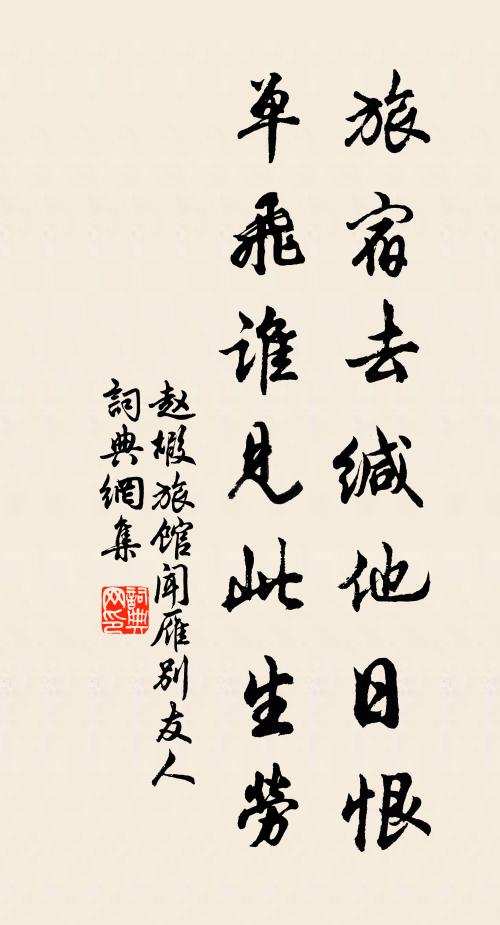 旅宿去缄他日恨
单飛谁見此生勞
赵嘏旅馆闻雁别友人
詞典網集
詞典网印